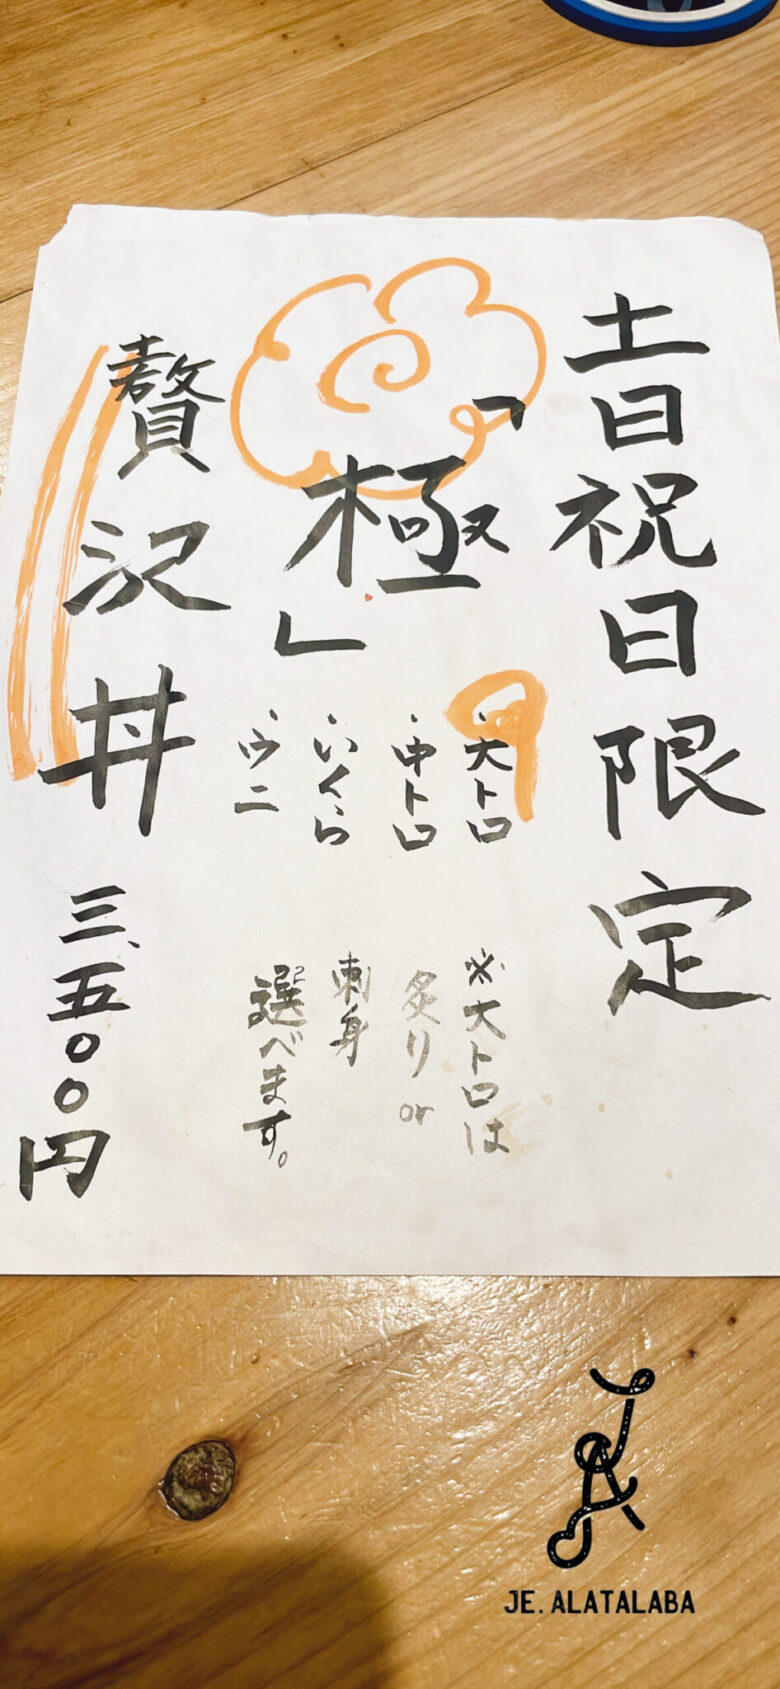 土日祝日限定
「極」
・大トロ
・中トロ
・いくら
・ウニ
※大トロは
炙りor
刺身
選べます。
贅沢丼
三、五〇〇円
JE. ALATALABA